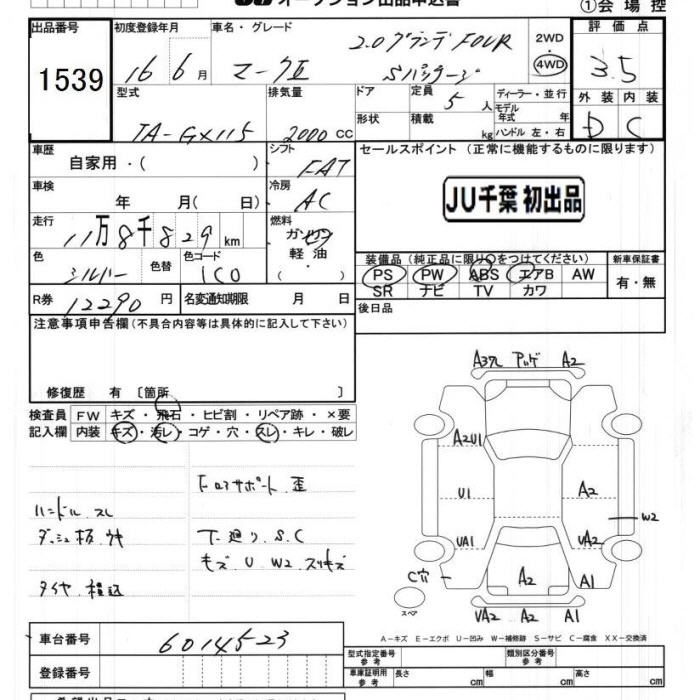 オークション出品申込書
①会場控
出品番号
1539
初度登録年月
16 6月
車名・グレード
2.0グランデFOUR
マークⅡ Sパッケージ
2WD
・
4WD
評価点
3.5
型式
TA-GX115
排気量
2000 CC
ドア
形状
定員 5 人
積載 kg
ディーラー・並行
モデル年式 年
ハンドル 左・右
外装 内装
D C
車歴
自家用・( )
シフト
FAT
セールスポイント(正常に機能するものに限ります)
JU千葉 初出品
車検
年 月( 日)
冷房
AC
走行
11万8千829km
燃料
ガソリン
軽油
( ・ )
色
シルバー
色替
色コード
1C0
装備品(純正品に限り○をつけてください)
PS PW ABS エアB AW
SR ナビ TV カワ
新車保証書
有・無
R券 12290円
名変通知期限 月 日
後日品
注意事項申告欄(不具合内容等は具体的に記入して下さい)
修復歴 有〔箇所 〕
検査員
記入欄
FW キズ・飛石・ヒビ割・リペア跡・×要
内装 キズ・汚レ・コゲ・穴・スレ・キレ・破レ
ハンドル スレ
ダッシュ板 ウキ
タイヤ 積込
F.ロアサポート 歪
下廻り S.C
キズ U W2 スリキズ
A3ワレ アッゲ A2
A2U1
U1
A2
W2
UA1
UA2
C穴
A2
A1
UA2 A2 A1
スペア
A-キズ E-エクボ U-凹み W-補修跡 S-サビ C-腐食 XX-交換済
車台番号 6014523
登録番号
型式指定番号
参考
類別区分番号
参考
車庫証明用
参考
長さ cm
幅 cm
高さ cm